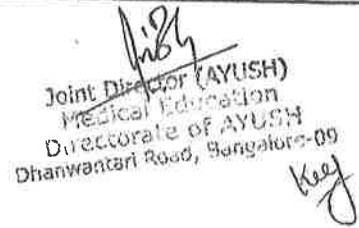 Joint Director (AYUSH)
Medical Education
Directorate of AYUSH
Dhanwantari Road, Bangalore-09